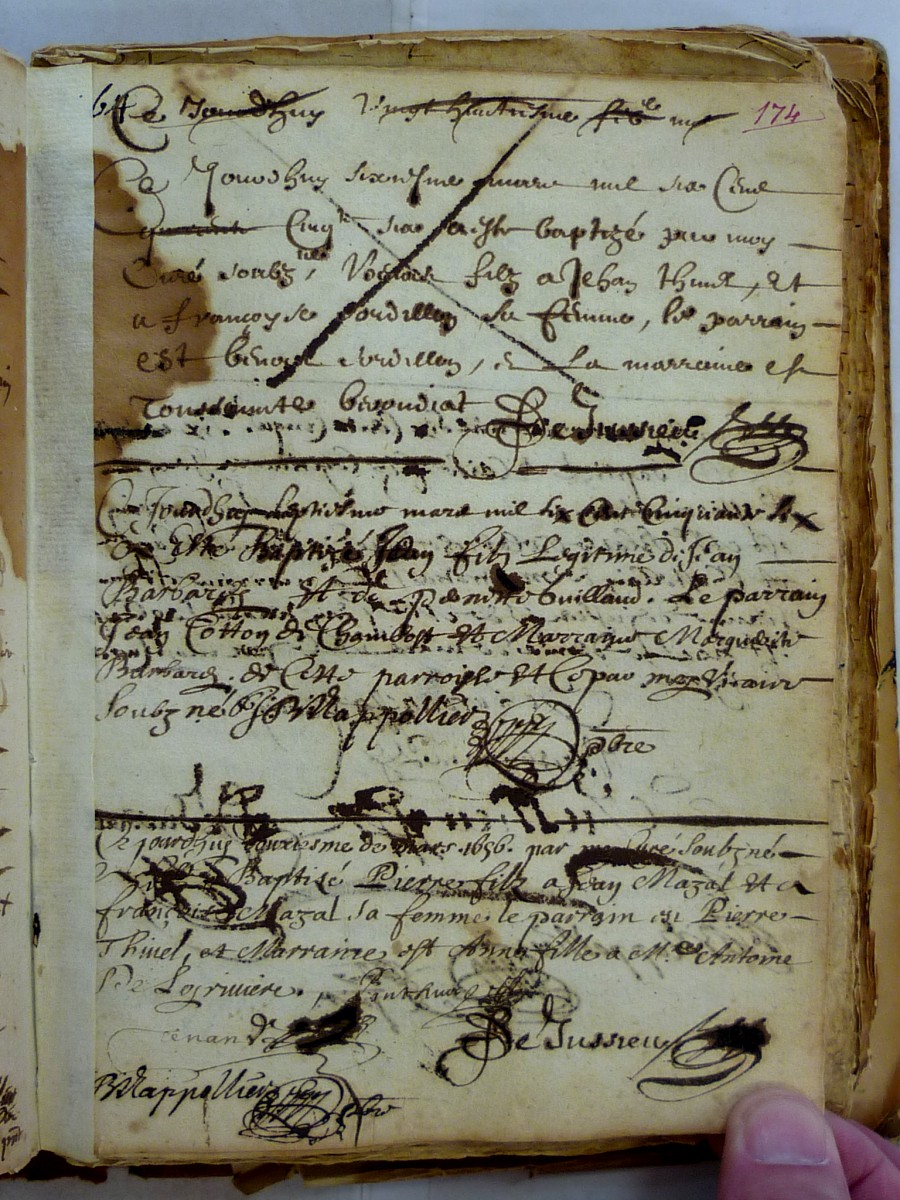 Ce Jourdhuy Vingt huictiesme feb 174
Ce Jourdhuy sixiesme mars mil six Cent
quarante Cinq.te six a este baptizé par moy
Curé soubz.né filz a Jehan thivel, Et
a françoyse Cordillon sa femme, le parrain
est benoist Cordillon, & La marraine est
Toussainte
De Jussieu
Ce Jourdhuy septiesme mars mil six Cent Cinquante six
a Esté Baptizé Jean filz Legitime de Jean
Barbard Et de Guillaud. Le parrain
Jean Cotton de Chambost Et Marraine Marguerite
Barbard. de Cette parroisse Et Ce par moy Vicaire
Soubzné Mappollier
pbre
Ce jourdhuy de Mars 1656. par Curé Soubzné
Baptizé Pierre filz a Jean Mazal Et a
françoise Mazal sa femme le parrain est Pierre
Thivel, et Marraine est Anne fille a M.re Antoine
De Logriviere.
De Jussieu
Mappollier pbre